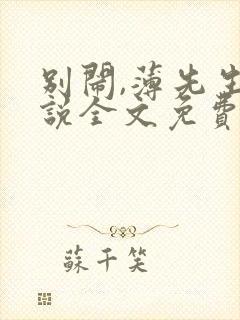 別鬧,薄先生
說全文免費
蘇千笑